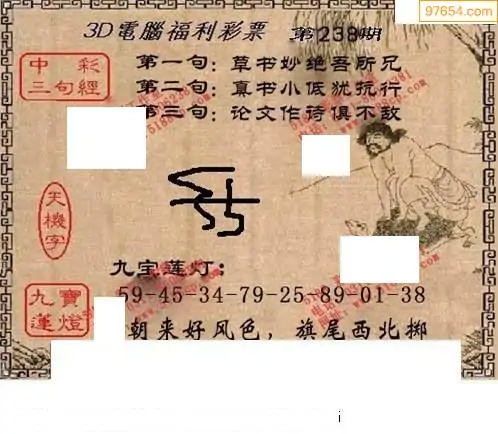 97654.com
3D電腦福利彩票 第238期
中彩三句經
第一句：草书妙绝吾所兄
第二句：真书小低犹抗行
第三句：论文作诗俱不敌
天機字
九宝莲灯：
九寶蓮燈
59-45-34-79-25-89-01-38
朝来好风色，旗尾西北掷
i